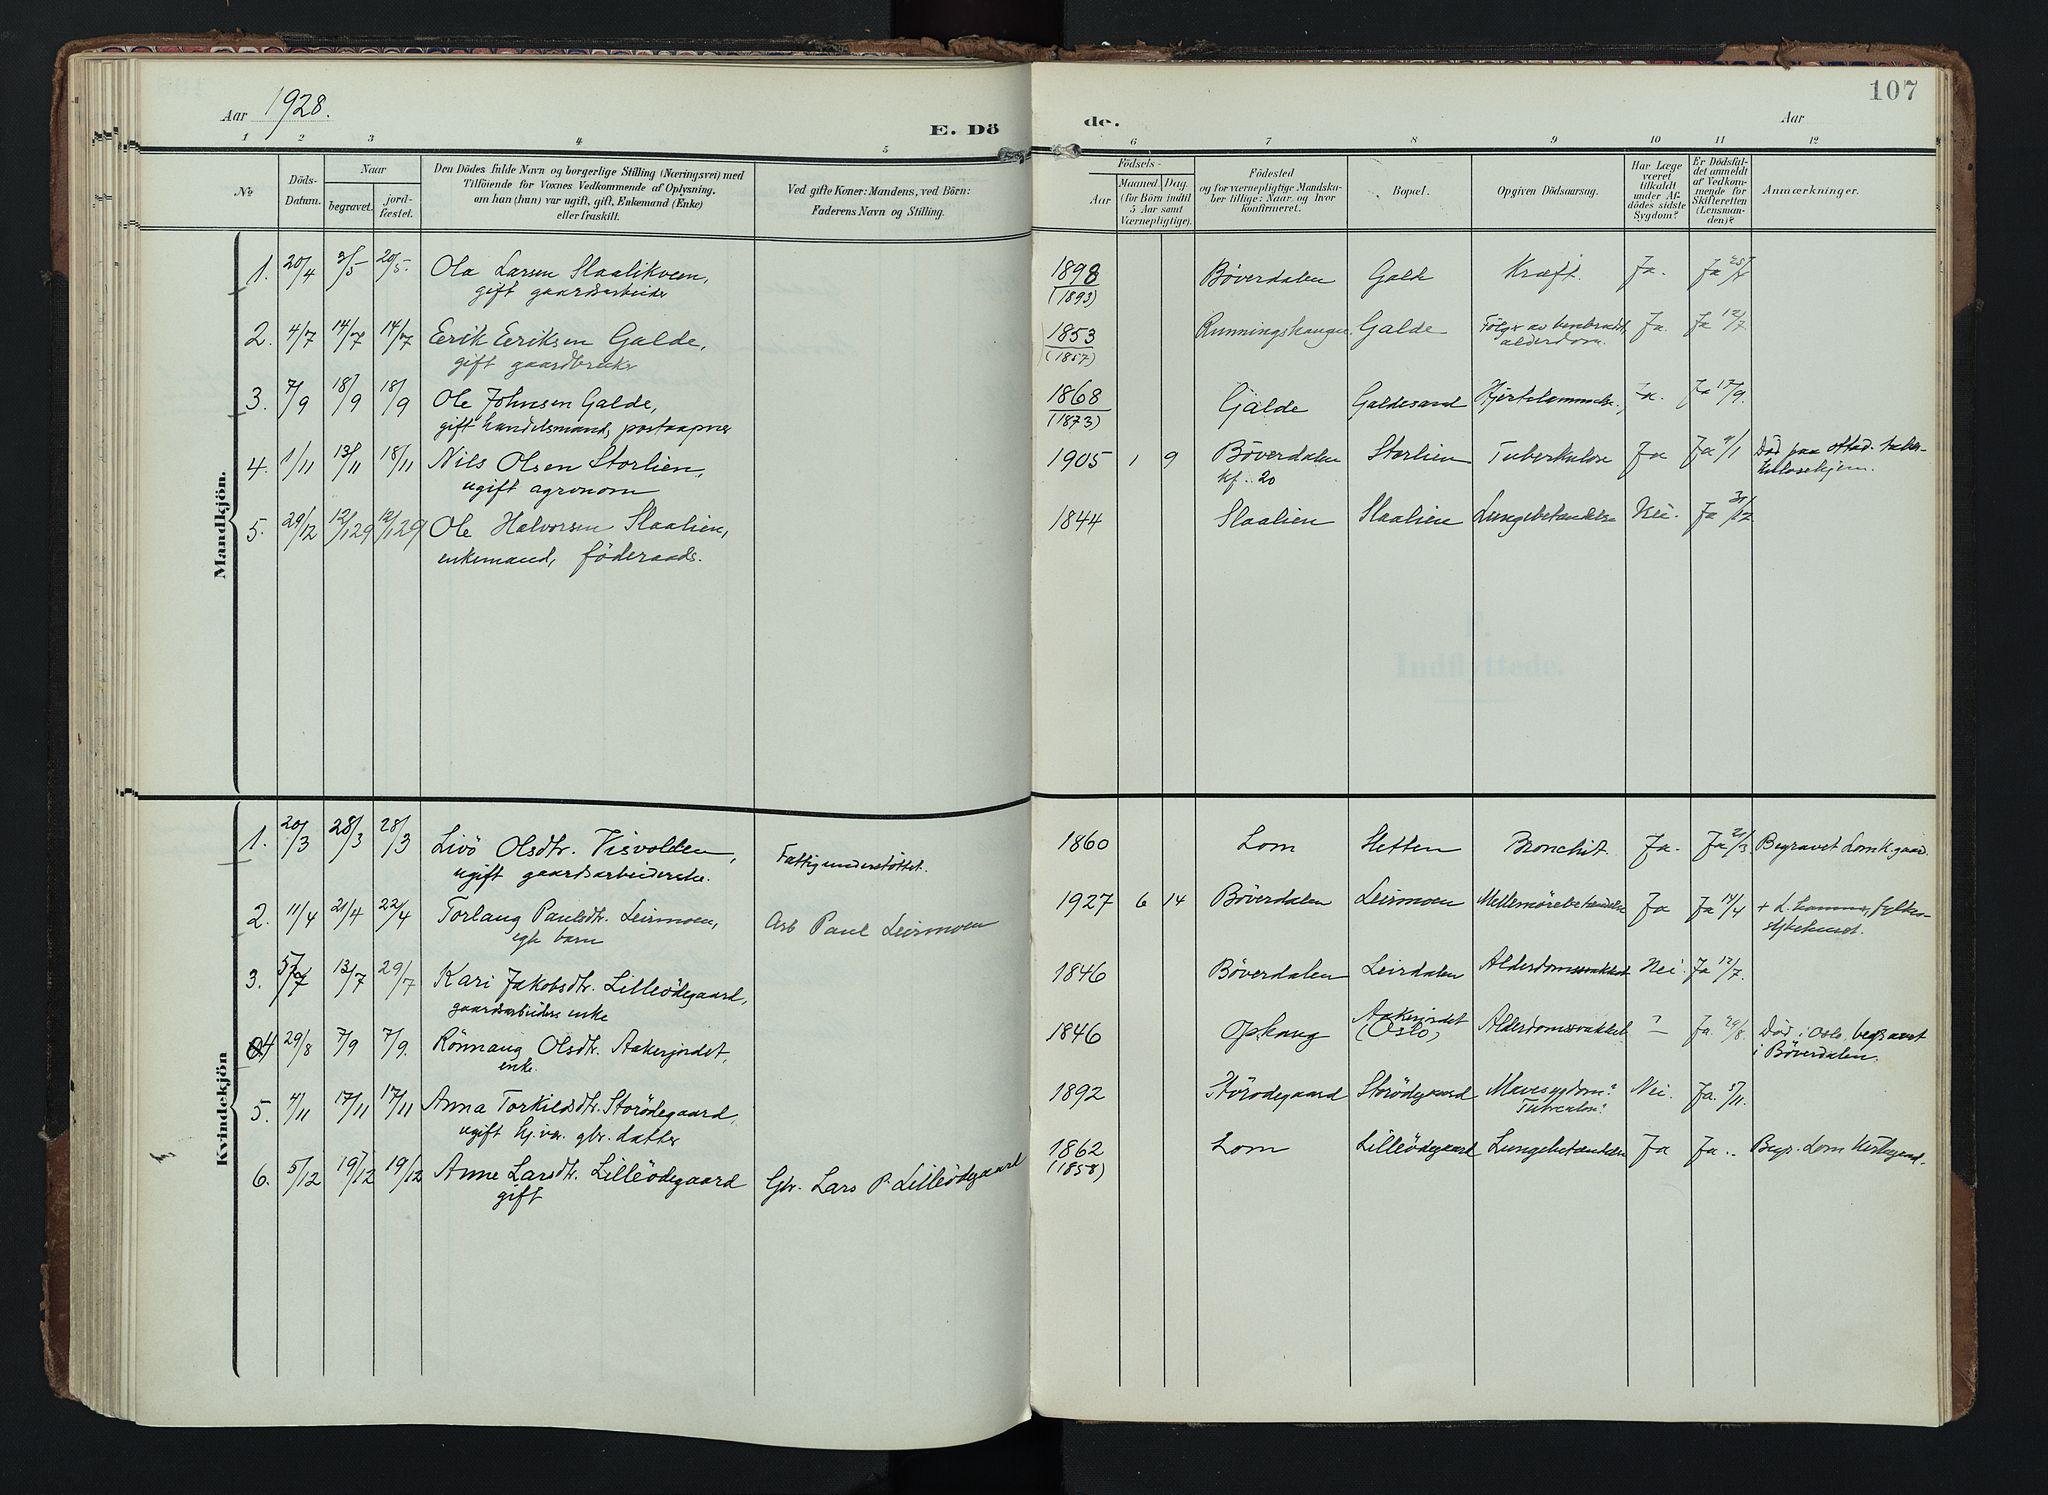 107
Aar 1928.
E. Dö
de.
Aar
1 2 3 4 5 6 7 8 9 10 11 12
No
Döds-Datum.
Naar
begravet.
jord-fæstet.
Den Dödes fulde Navn og borgerlige Stilling (Næringsvei) med
Tilföiende for Voxnes Vedkommende af Oplysning,
om han (hun) var ugift, gift, Enkemand (Enke)
eller fraskilt.
Ved gifte Koner: Mandens, ved Börn:
Faderens Navn og Stilling.
Födsels-
Aar
Maaned. Dag.
(for Börn indtil
5 Aar samt
Værnepligtige).
Födested
og for værnepligtige Mandska-
ber tillige: Naar og hvor
konfirmeret.
Bopæl.
Opgiven Dödsaarsag.
Har Læge
været
tilkaldt
under Af-
dödes sidste
Sygdom?
Er Dödsfal-
det anmeldt
af Vedkom-
mende for
Skifteretten
(Lensman-
den)?
Anmærkninger.
Mandkjön.
1. 20/4 2/5 20/5. Ola Larsen Slaalikveen, 1898 Böverdalen Galde Kræft. Ja. Ja
gift gaardsarbeider (1893)
2. 4/7 14/7 14/7 Erik Eriksen Galde, 1853 Runningshaugen Galde Fölge av benbrudd, Ja. Ja 12/7.
gift gaardbruker (1857) alderdom.
3. 7/9 18/9 18/9 Ole Johnsen Galde, 1868 Gjalde Galdesand Hjertelammelse. Ja. Ja 17/9.
gift handelsmand, postaapner (1873)
4. 1/11 13/11 18/11 Nils Olsen Storlien, 1905 1 9 Böverdalen Storlien Tuberkulose Ja Ja Död paa Ottad. tuber-
ugift agronom kf. 20 kulosehjem.
5. 29/12 12/1 29 12/1 29 Ole Halvorsen Slaalien, 1844 Slaalien Slaalien Lungebetændelse Nei. Ja 31/12
enkemand, föderaads.
I.
Indflyttede.
Kvindekjön
1. 20/3 28/3 28/3 Livö Olsdtr. Visvolden, Fattigunderstöttet. 1860 Lom Sletten Bronchit. Ja. Ja 21/3 Begravet Lom k.gaard.
ugift gaardsarbeiderske.
2. 11/4 21/4 22/4 Torlaug Paulsdtr. Leirmoen, Arb Paul Leirmoen 1927 6 14 Böverdalen Leirmoen Mellemörebetændelse Ja Ja 14/4 + L. hammer, fylkes-
egte barn sykehuset.
3. 5/7 13/7 29/7 Kari Jakobsdtr. Lilleödegaard, 1846 Böverdalen Leirdalen Alderdomssvakhet Nei. Ja 12/7.
gaardsarbeiders enke
4 29/8 7/9 7/9. Rönnaug Olsdtr. Aakerjordet, 1846 Ophaug Aakerjordet (Oslo) Alderdomssvakhet ? Ja. 29/8. Död i Oslo, begravet
enke. i Böverdalen.
5. 4/11 17/11 17/11 Anna Torkildsdtr. Storödegaard, 1892 Storödegaard Storödegaard Mavesygdom? Nei. Ja. 5/11.
ugift hj.vær. gbr. datter Tuberculos?
6. 5/12 19/12 19/12 Anne Larsdtr. Lilleödegaard Gbr. Lars P. Lilleödegaard 1862 Lom Lilleödegaard Lungebetændelse Ja Ja.. Begr. Lom Kirkegaard.
gift (1858)